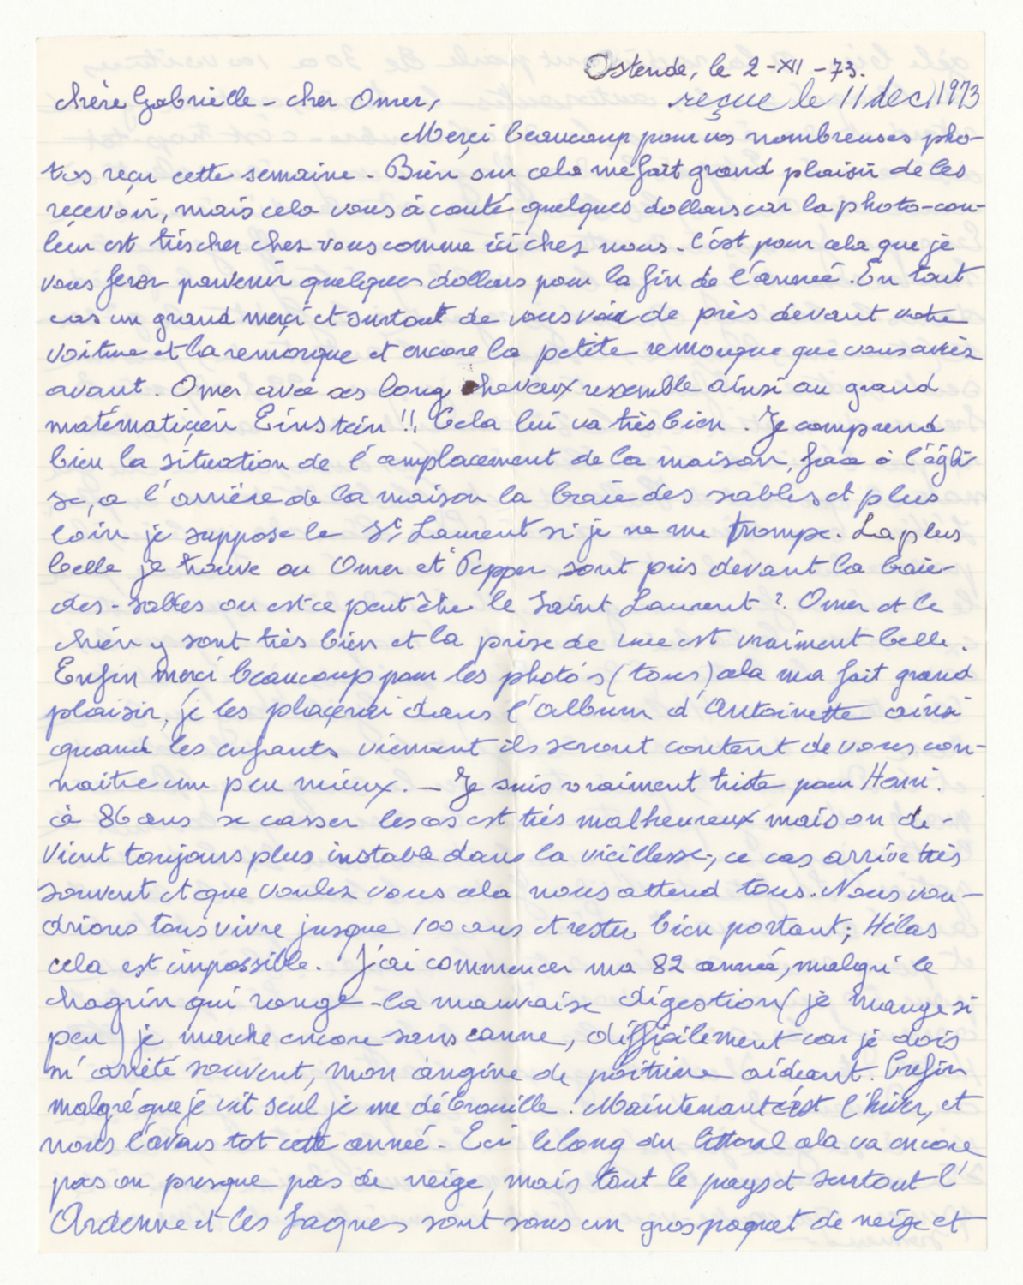 Ostende, le 2-XII-73.
chère Gabrielle - cher Omer,
reçue le 11 dec/1973
Merçi beaucoup pour vos nombreuses pho-
tos reçu cette semaine. Bien sur cela me fait grand plaisir de les
recevoir, mais cela vous à couté quelques dollars car la photo-cou-
leur est très cher chez vous comme ici chez nous. C'est pour cela que je
vous ferer parvenir quelques dollars pour la fin de l'année. En tout
cas un grand merçi et surtout de vous voir de près devant votre
voiture et la remorque et encore la petite remorque que vous aviez
avant. Omer avec ces long chevaux resemble ainsi au grand
matématicien Einstein!! Cela lui va très bien. Je comprend
bien la situation de l'amplacement de la maison, face à l'égli-
se, a l'arrière de la maison la baie des sables et plus
loin je suppose le St Laurent si je ne me trompe. La plus
belle je trouve ou Omer et Pepper sont pris devant la baie-
des-sables ou est-ce peut être le Saint Laurent? Omer et le
chien y sont très bien et la prise de vue est vraiment belle.
Enfin merci beaucoup pour les photo's (tous) cela ma fait grand
plaisir, je les plaçerai dans l'album d'Antoinette ainsi
quand les enfants viennent ils seront content de vous con-
naitre un peu mieux. - Je suis vraiment triste pour Henri.
à 86 ans se casser les os est très malheureux mais on de-
vient toujours plus instable dans la vieillesse, ce cas arrive très
souvent et que voulez vous cela nous attend tous. Nous vou-
drions tous vivre jusque 100 ans et rester bien portant; Hélas
cela est impossible. J'ai commencer ma 82 année, malgré le
chagrin qui ronge - la mauvaise digestion (je mange si
peu) je marche encore sans canne, difficilement car je dois
m'arrêté souvent, mon angine de poitrine aidant. Enfin
malgré que je vit seul je me débrouille. Maintenant c'est l'hiver, et
nous l'avons tot cette année. Ici le long du littoral cela va encore
pas ou presque pas de neige, mais tout le pays et surtout l'
Ardenne et les Fagnes sont sous un gros paquet de neige et